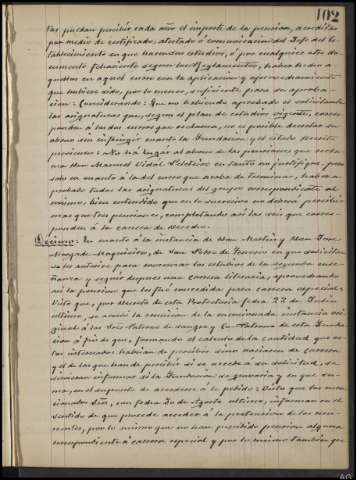 102
tas puedan percibir cada año el importe de la pension, acreditar
por medio de certificado, atestado ó comunicacion del Jefe del Es-
tablecimiento en que hacen sus estudios, ó por cualquier otro do-
cumento fehaciente segun los Reglamentos, haber tenido
en aquel curso con la aplicacion y aprovechamiento
que hubiere sido, por lo menos, suficiente para su aproba-
cion: Considerando: Que no habiendo aprobado el solicitante
las asignaturas que, segun el plan de estudios vigente, corres-
ponden á los dos cursos que reclama, no es posible decretar su
abono sin infringir cuanto la Fundacion y el citado precepto
previenen: = No há lugar al abono de las pensiones que recla-
ma Don Manuel Vidal en tanto no justifique, pero
solo en cuanto á la del curso que acaba de terminar, haber a-
probado todas las asignaturas del grupo correspondiente al
mismo, bien entendido que en lo sucesivo no deberá percibir
mas que tres pensiones, completando así las seis que corres-
ponden á la carrera de derecho.
Décimo: En cuanto á la instancia de Don Martin y Don José
de San Pedro de en que solicitan
se les autorice para comenzar los estudios de la segunda ense-
ñanza y seguir despues una carrera literaria, aprovechando
así la pension que les fué concedida para carrera especial:
Visto que, por decreto de esta Protectoria fecha 22 de Julio
último, se acordó la remision de la mencionada instancia ori-
ginal á los Sres Patronos de sangre y Co-Patronos de esta Funda-
cion á fin de que, formando el calculo de la cantidad que es-
tos interesados habian de percibir como de carrera
y el de la que han de percibir si se accede á su solicitud, se
sirviesen informar si la Fundacion se y en que su-
ma, en el supuesto de accederse á lo pedido: Visto que los men-
cionados Sres, con fecha 30 de Agosto último, informan en el
sentido de que procede acceder á la pretension de los recu-
rrentes, por lo mismo que no han percibido pension alguna
correspondiente á carrera especial y por lo mismo tambien que
AG